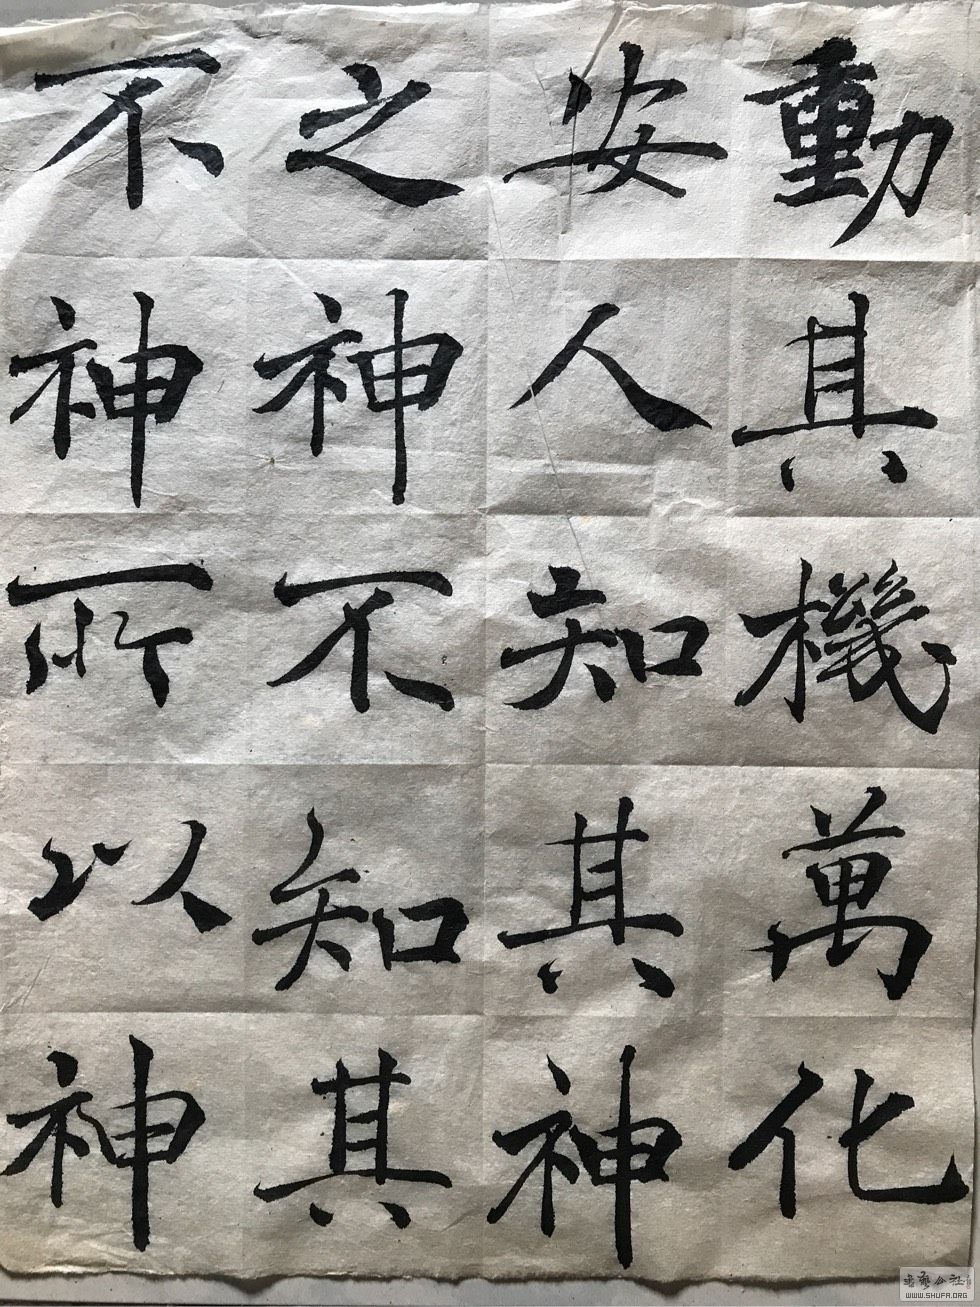 動其機萬化
安人知其神
之神不知其
不神所以神
书艺公社
WWW.SHUFA.ORG